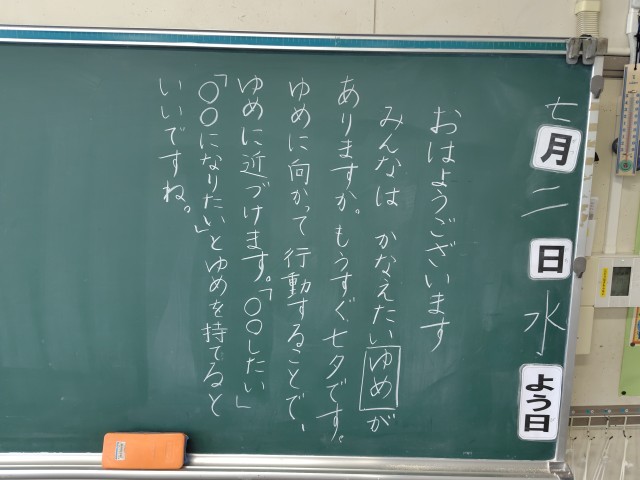 七月二日水よう日
おはようございます
みんなは かなえたいゆめが
ありますか。もうすぐ七夕です。
ゆめに向かって行動することで、
ゆめに近づけます。「○○したい」
「○○になりたい」とゆめを持てると
いいですね。